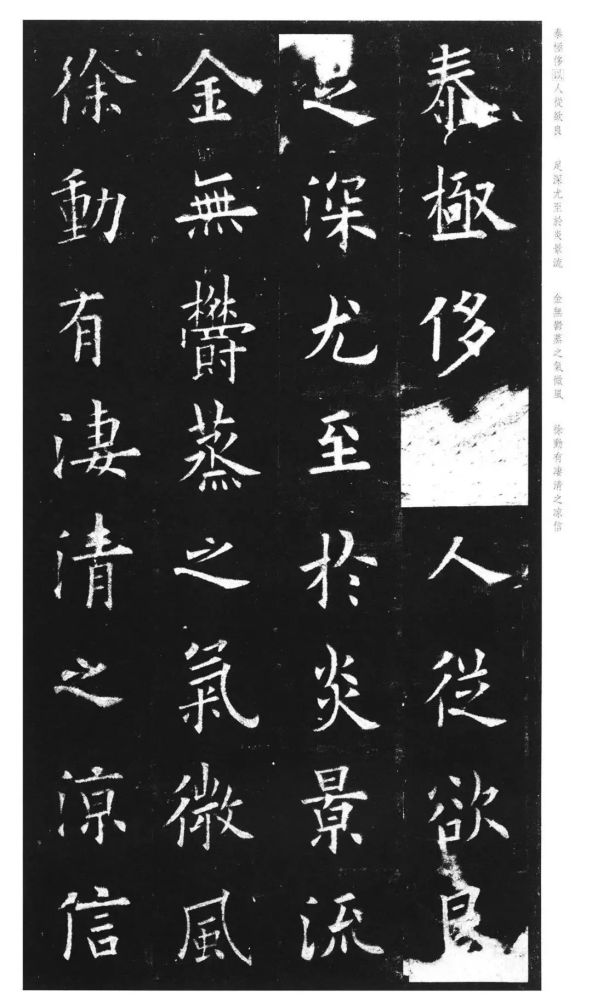 泰極侈人從欲良
足深尤至於炎景流
金無鬱蒸之氣微風
徐動有淒清之涼信
泰極侈以人從欲良
足深尤至於炎景流
金無鬱蒸之氣微風
徐動有凄清之凉信